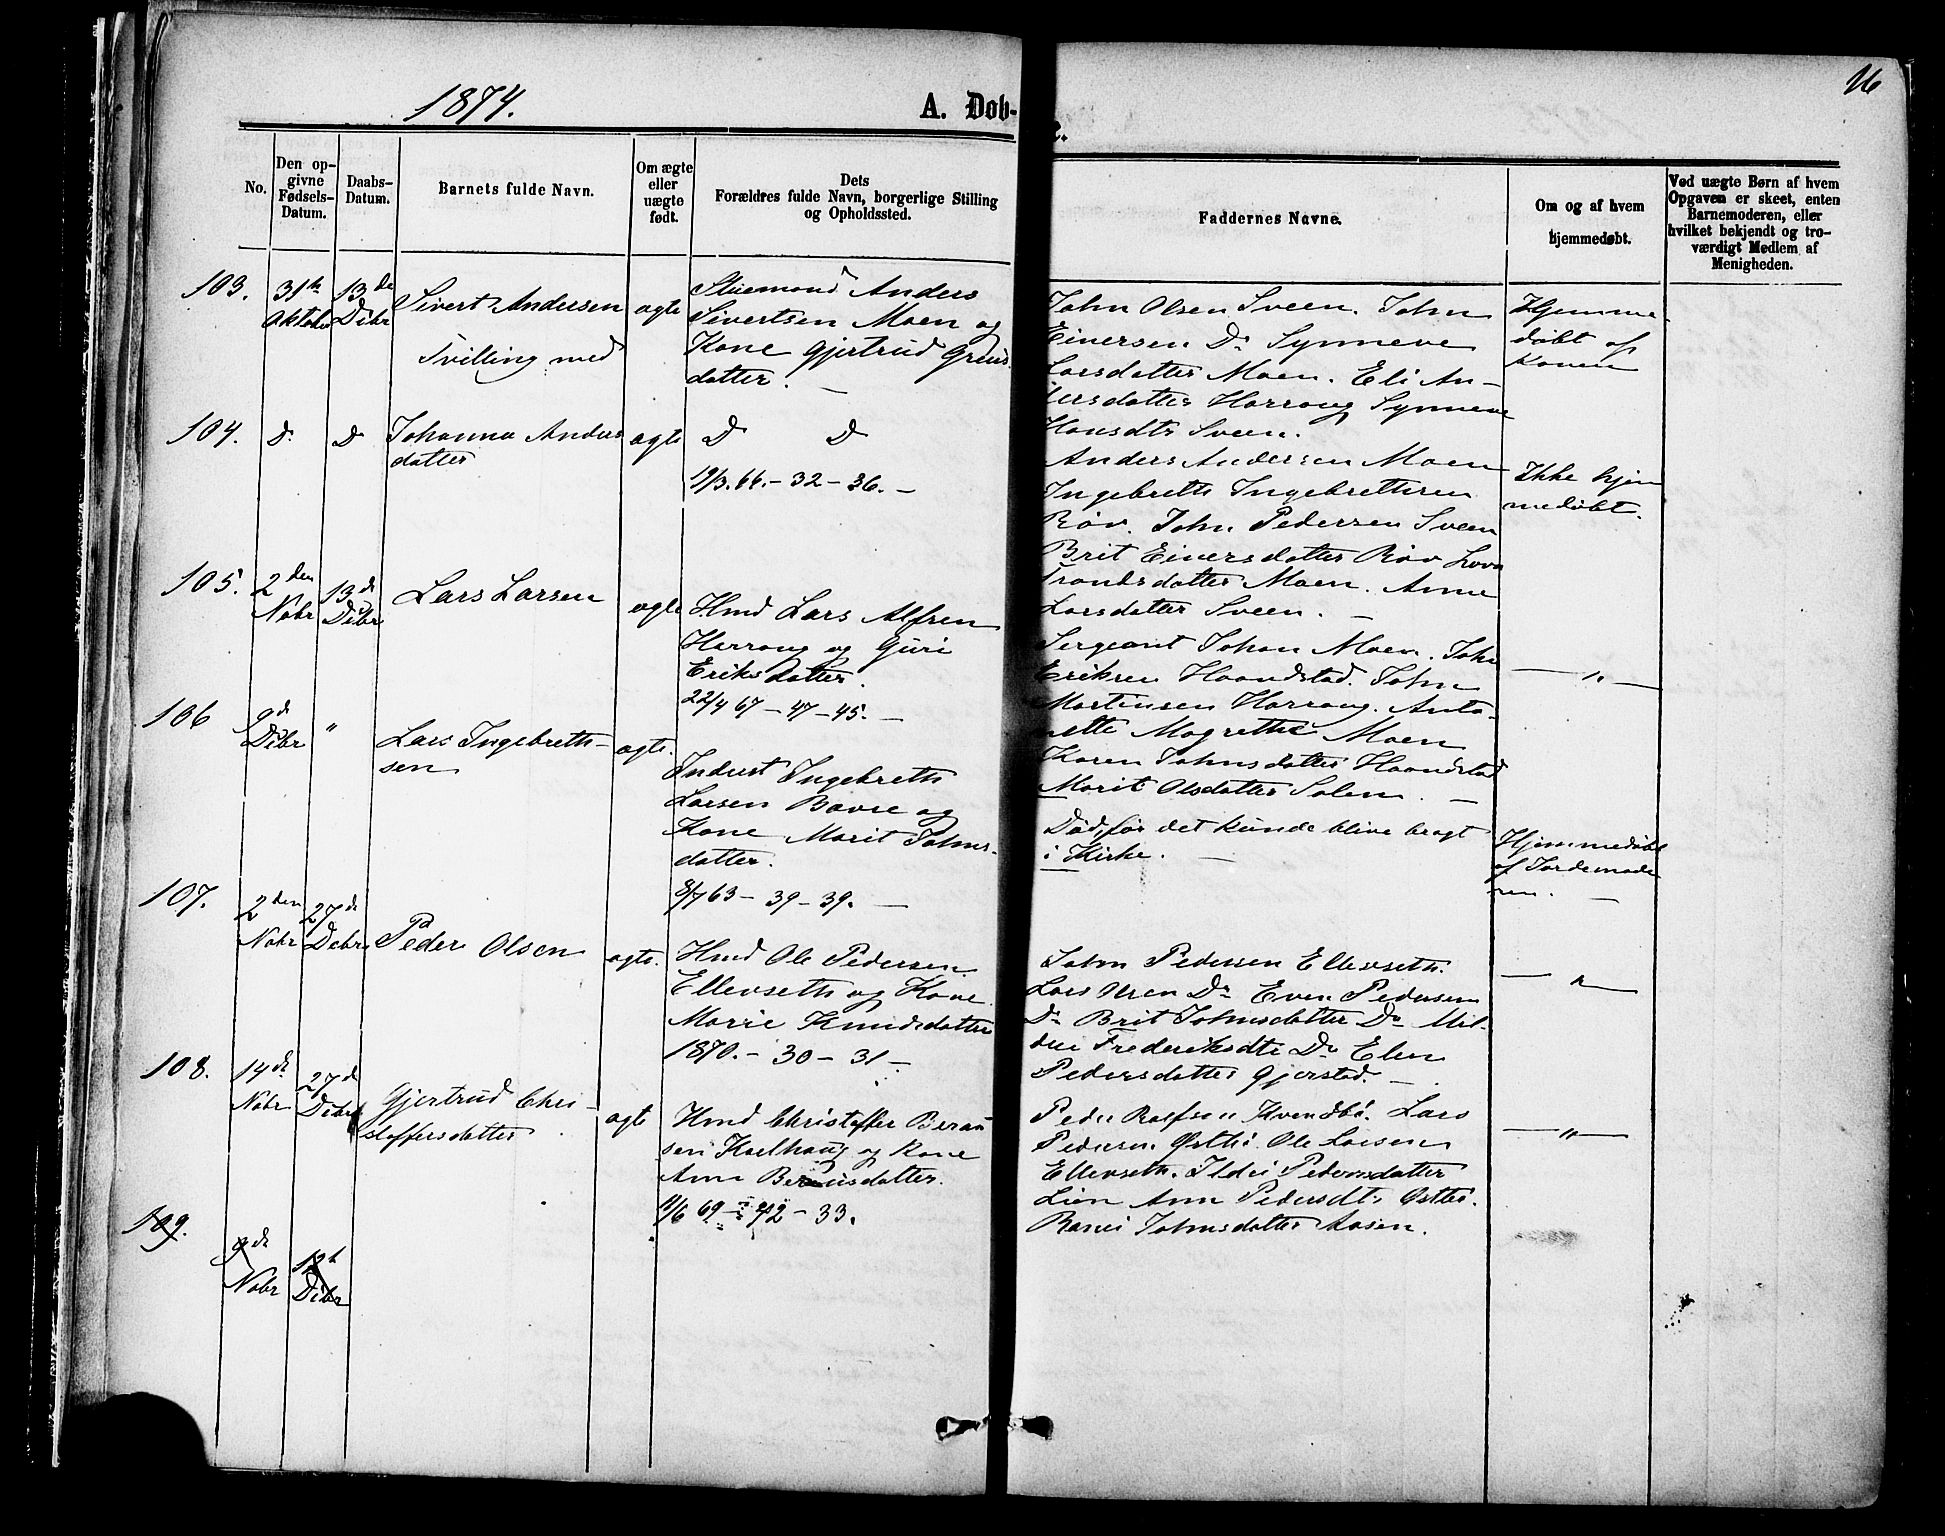 1874.
A. Døb-
e.
16
No.
Den op-
givne
Fødsels-
Datum.
Daabs-
Datum.
Barnets fulde Navn.
Om ægte
eller
uægte
født.
Dets
Forældres fulde Navn, borgerlige Stilling
og Opholdssted.
Faddernes Navne.
Om og af hvem
hjemmedøbt.
Ved uægte Børn af hvem
Opgaven er skeet, enten
Barnemoderen, eller
hvilket bekjendt og tro-
værdigt Medlem af
Menigheden.
103.
31te
Oktober
13de
Dcbr
Sivert Andersen
Tvilling med
ægte
Anders
Sivertsen Moen og
Kone Gjertrud
datter.
John Olsen Sveen. John
Einersen Do Synneve
Larsdatter Moen. Eli An-
dersdatter Harraug Synneve
Hansdtr Sveen.
Hjemme-
døbt af
Konen
104.
D.
D
Johanna Anders
datter
ægte
D D
19/3. 66. – 32 – 36. –
Anders Andersen Moen
Ingebreth Ingebrethsen
Røv. John Pedersen Sveen
Brit Einersdatter Røv
Trondsdatter Moen. Anne
Larsdatter Sveen. –
Ikke hjem
medøbt.
105.
2den
Nobr
13d
Dcbr
Lars Larsen
ægte
Hmd Lars
Harraug og Guri
Eriksdatter.
22/4 67 – 47 – 45. –
Sergeant Johan Moen. John
Eriksen Haandstad. John
Martinsen Harraug. Anto-
nette Magrethe Moen
Karen Johnsdatter Haandstad
Marit Olsdatter Solem. –
— " —
106
9d
Dcbr
"
Lars Ingebreth-
sen
ægte.
Indust Ingebreth
Larsen Bævre og
Kone Marit Johns-
datter.
8/7 63 – 39 – 39. –
Død, før det kunde blive bragt
i Kirke. –
Hjemmedøbt
af Jordemode
ren. –
107.
2den
Nobr
27d
Dcbr
Peder Olsen
ægte.
Hmd Ole Pedersen
Ellevseth og Kone
Marie Knudsdatter
1870. – 30 – 31 –
John Pedersen Ellevseth.
Lars Olsen Do Even Pedersen
Do Brit Johnsdatter Do Mil-
dri Frederiksdtr Do Elen
Pedersdatter Gjerstad. –
— " —
108.
14d
Nobr
27d
Dcbr
Gjertrud Chri-
stoffersdatter
ægte
Hmd Christoffer
sen og Kone
Ann
11/6 69 – 42 – 33.
Peder Kvendbø. Lars
Pedersen Østbø. Ole Larsen
Ellevseth. Ildri Pedersdatter
Lien Ann Pedersdtr Østbø.
Johnsdatter Aasen.
— " —
109.
9d
Nobr
12t
Dcbr